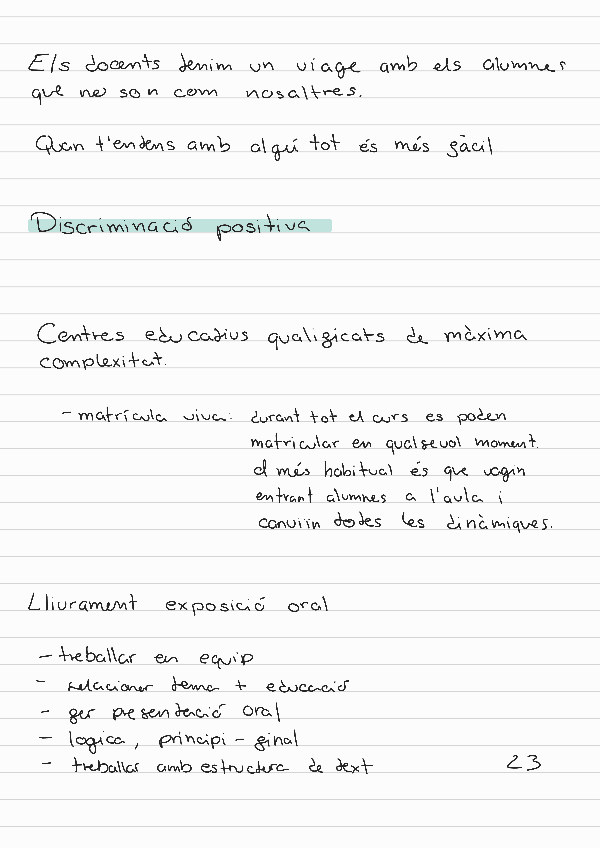 Els docents tenim un viage amb els alumnes
que no son com nosaltres.
Quan t'entens amb algú tot és més fàcil
Discriminació positiva
Centres educatius qualificats de màxima
complexitat.
- matrícula viva: durant tot el curs es poden
matricular en qualsevol moment.
el més habitual és que vagin
entrant alumnes a l'aula i
canviïn totes les dinàmiques.
Lliurament exposició oral
- treballar en equip
- relacionar tema + educació
- fer presentació oral
- logica, principi - final
- treballar amb estructura de text
23